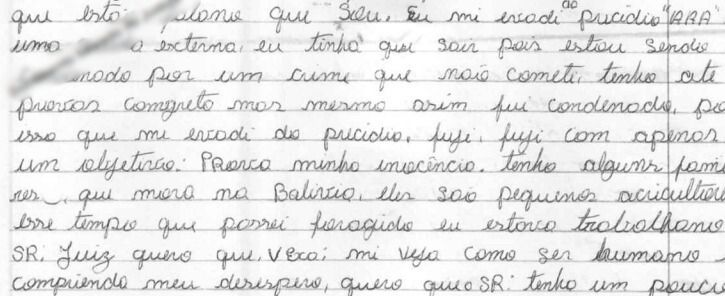 que está plano que Sou, Eu mi evadi do pucidio "ARA"
uma externa, eu tinha que sair pois estou sendo
nado por um crime que não cometi, tenho até
provas comgreto mas mesmo asim fui condenado, po
isso que mi evadi do pricidio, fugi, fugi com apenas
um objetivo: PRova minha inocência. tenho alguns fami
res, que mora na Balivia, eles são pequenos acricultore
esse tempo que passei foragido eu estava trabalhano
SR: Juiz quero que, vexa; mi veja como ser humano
compriendo meu desespero, quero que o SR: tenho um pouci